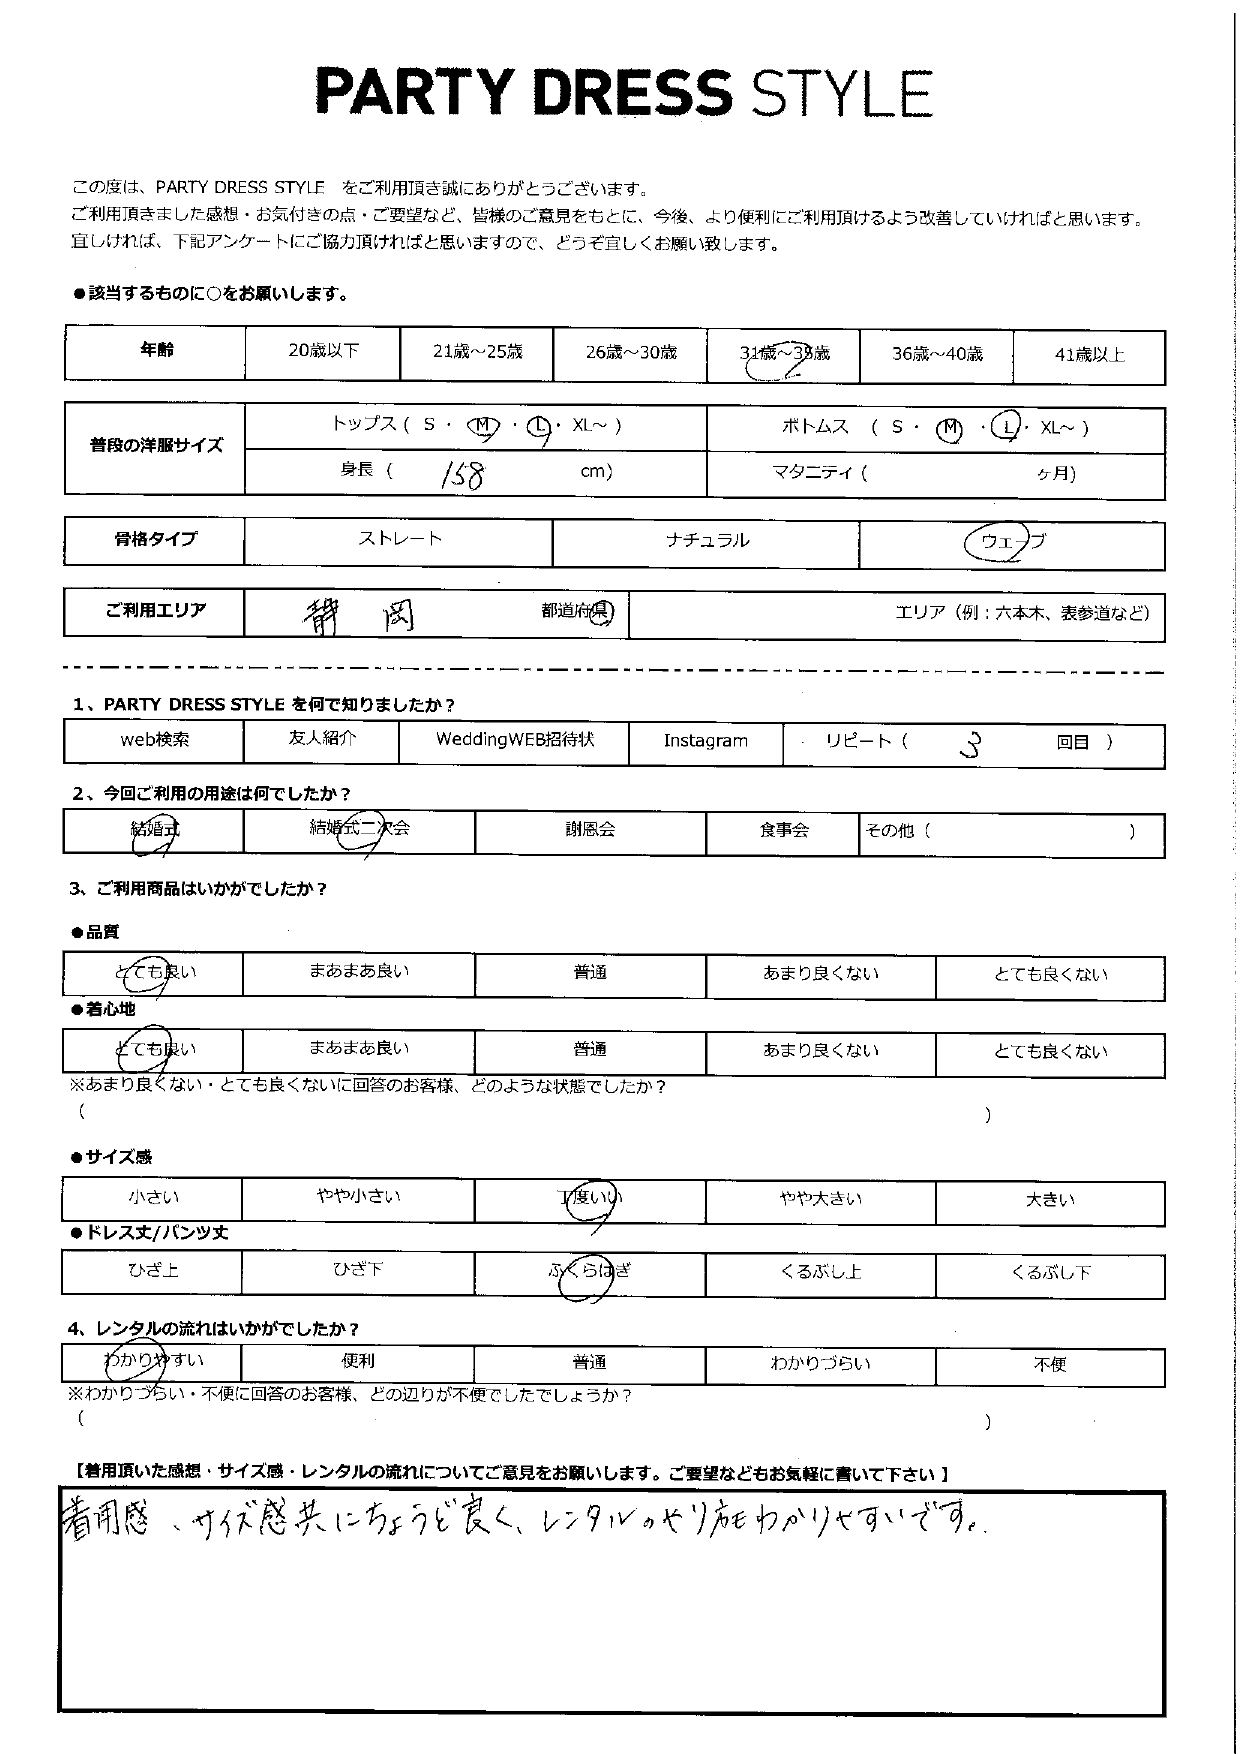 PARTY DRESS STYLE
この度は、PARTY DRESS STYLE　をご利用頂き誠にありがとうございます。
ご利用頂きました感想・お気付きの点・ご要望など、皆様のご意見をもとに、今後、より便利にご利用頂けるよう改善していければと思います。
宜しければ、下記アンケートにご協力頂ければと思いますので、どうぞ宜しくお願い致します。
●該当するものに○をお願いします。
年齢 20歳以下 21歳～25歳 26歳～30歳 31歳～35歳 36歳～40歳 41歳以上
普段の洋服サイズ トップス ( S ・ M ・ L ・ XL～ ) ボトムス ( S ・ M ・ L ・ XL～ )
身長 ( 158 cm) マタニティ ( ヶ月)
骨格タイプ ストレート ナチュラル ウェーブ
ご利用エリア 静岡 都道府県 エリア（例：六本木、表参道など）
1、PARTY DRESS STYLE を何で知りましたか？
web検索 友人紹介 WeddingWEB招待状 Instagram リピート ( 3 回目 )
2、今回ご利用の用途は何でしたか？
結婚式 結婚式二次会 謝恩会 食事会 その他 ( )
3、ご利用商品はいかがでしたか？
●品質
とても良い まあまあ良い 普通 あまり良くない とても良くない
●着心地
とても良い まあまあ良い 普通 あまり良くない とても良くない
※あまり良くない・とても良くないに回答のお客様、どのような状態でしたか？
( )
●サイズ感
小さい やや小さい 丁度いい やや大きい 大きい
●ドレス丈/パンツ丈
ひざ上 ひざ下 ふくらはぎ くるぶし上 くるぶし下
4、レンタルの流れはいかがでしたか？
わかりやすい 便利 普通 わかりづらい 不便
※わかりづらい・不便に回答のお客様、どの辺りが不便でしたでしょうか？
( )
【着用頂いた感想・サイズ感・レンタルの流れについてご意見をお願いします。ご要望などもお気軽に書いて下さい】
着用感、サイズ感共にちょうど良く、レンタルのやり方もわかりやすいです。